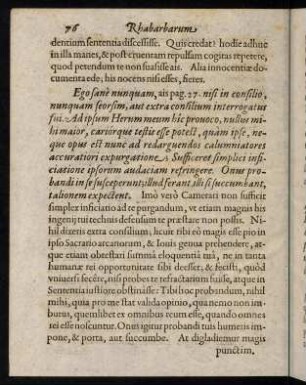 76 Rhabarbarum
dentium sententia discessisse. Quis credat? hodie adhuc
in illa manes, & post cruentam repulsam cogitas repetere,
quod petendum te non suasisse ais. Alia innocentiæ do-
cumenta ede; his nocens nisi esses, fieres.
Ego sanè nunquam, ais pag. 27. nisi in consilio,
nunquam seorsim, aut extra consilium interrogatus
fui. Ad ipsum Herum meum hic provoco, nullus mi-
hi maior, cariorque testis esse potest, quàm ipse, ne-
que opus est nunc ad redarguendos calumniatores
accuratiori expurgatione. Sufficeret simplici infi-
ciatione ipsorum audaciam refringere. Onus pro-
bandi in se susceperunt, illud ferant, illi si succumbant,
talionem expectent. Imò verò Camerari non sufficit
simplex inficiatio ad te purgandum, vt etiam magni his
ingenij tui technis defensum te præstare non possis. Ni-
hil dixeris extra consilium, licuit tibi eò magis esse pio in
ipso Sacrario arcanorum, & Iouis genua prehendere, at-
que etiam obtestari summâ eloquentiâ tuâ, ne in tanta
humanæ rei opportunitate sibi deesset, & fecisti, quòd
vniuersi fecêre, nisi probes te refractarium fuisse, atque in
Sententia iustiore obstitisse: Tibi hoc probandum, nihil
mihi, quia pro me stat valida opinio, qua nemo non im-
butus, quemlibet ex omnibus reum esse, quando omnes
rei esse noscuntur. Onus igitur probandi tuis humeris im-
pone, & porta, aut succumbe. At digladiemur magis
punctim,